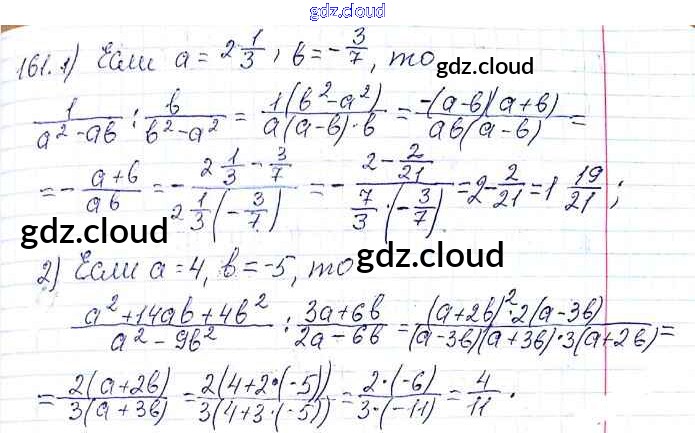 gdz.cloud
161. 1) Если a = 2 1/3, b = - 3/7, то
gdz.cloud
1/(a² - ab) : b/(b² - a²) = 1(b² - a²)/(a(a - b)·b) = -(a - b)(a + b)/(ab(a - b)) =
= - (a + b)/(ab) = - (2 1/3 - 3/7)/(2 1/3 (- 3/7)) = - (2 - 2/21)/(7/3 · (- 3/7)) = 2 - 2/21 = 1 19/21;
gdz.cloud
gdz.cloud
2) Если a = 4, b = -5, то
(a² + 14ab + 4b²)/(a² - 9b²) : (3a + 6b)/(2a - 6b) = (a + 2b)²·2(a - 3b)/((a - 3b)(a + 3b)·3(a + 2b)) =
= 2(a + 2b)/(3(a + 3b)) = 2(4 + 2·(-5))/(3(4 + 3·(-5))) = 2·(-6)/(3·(-11)) = 4/11.